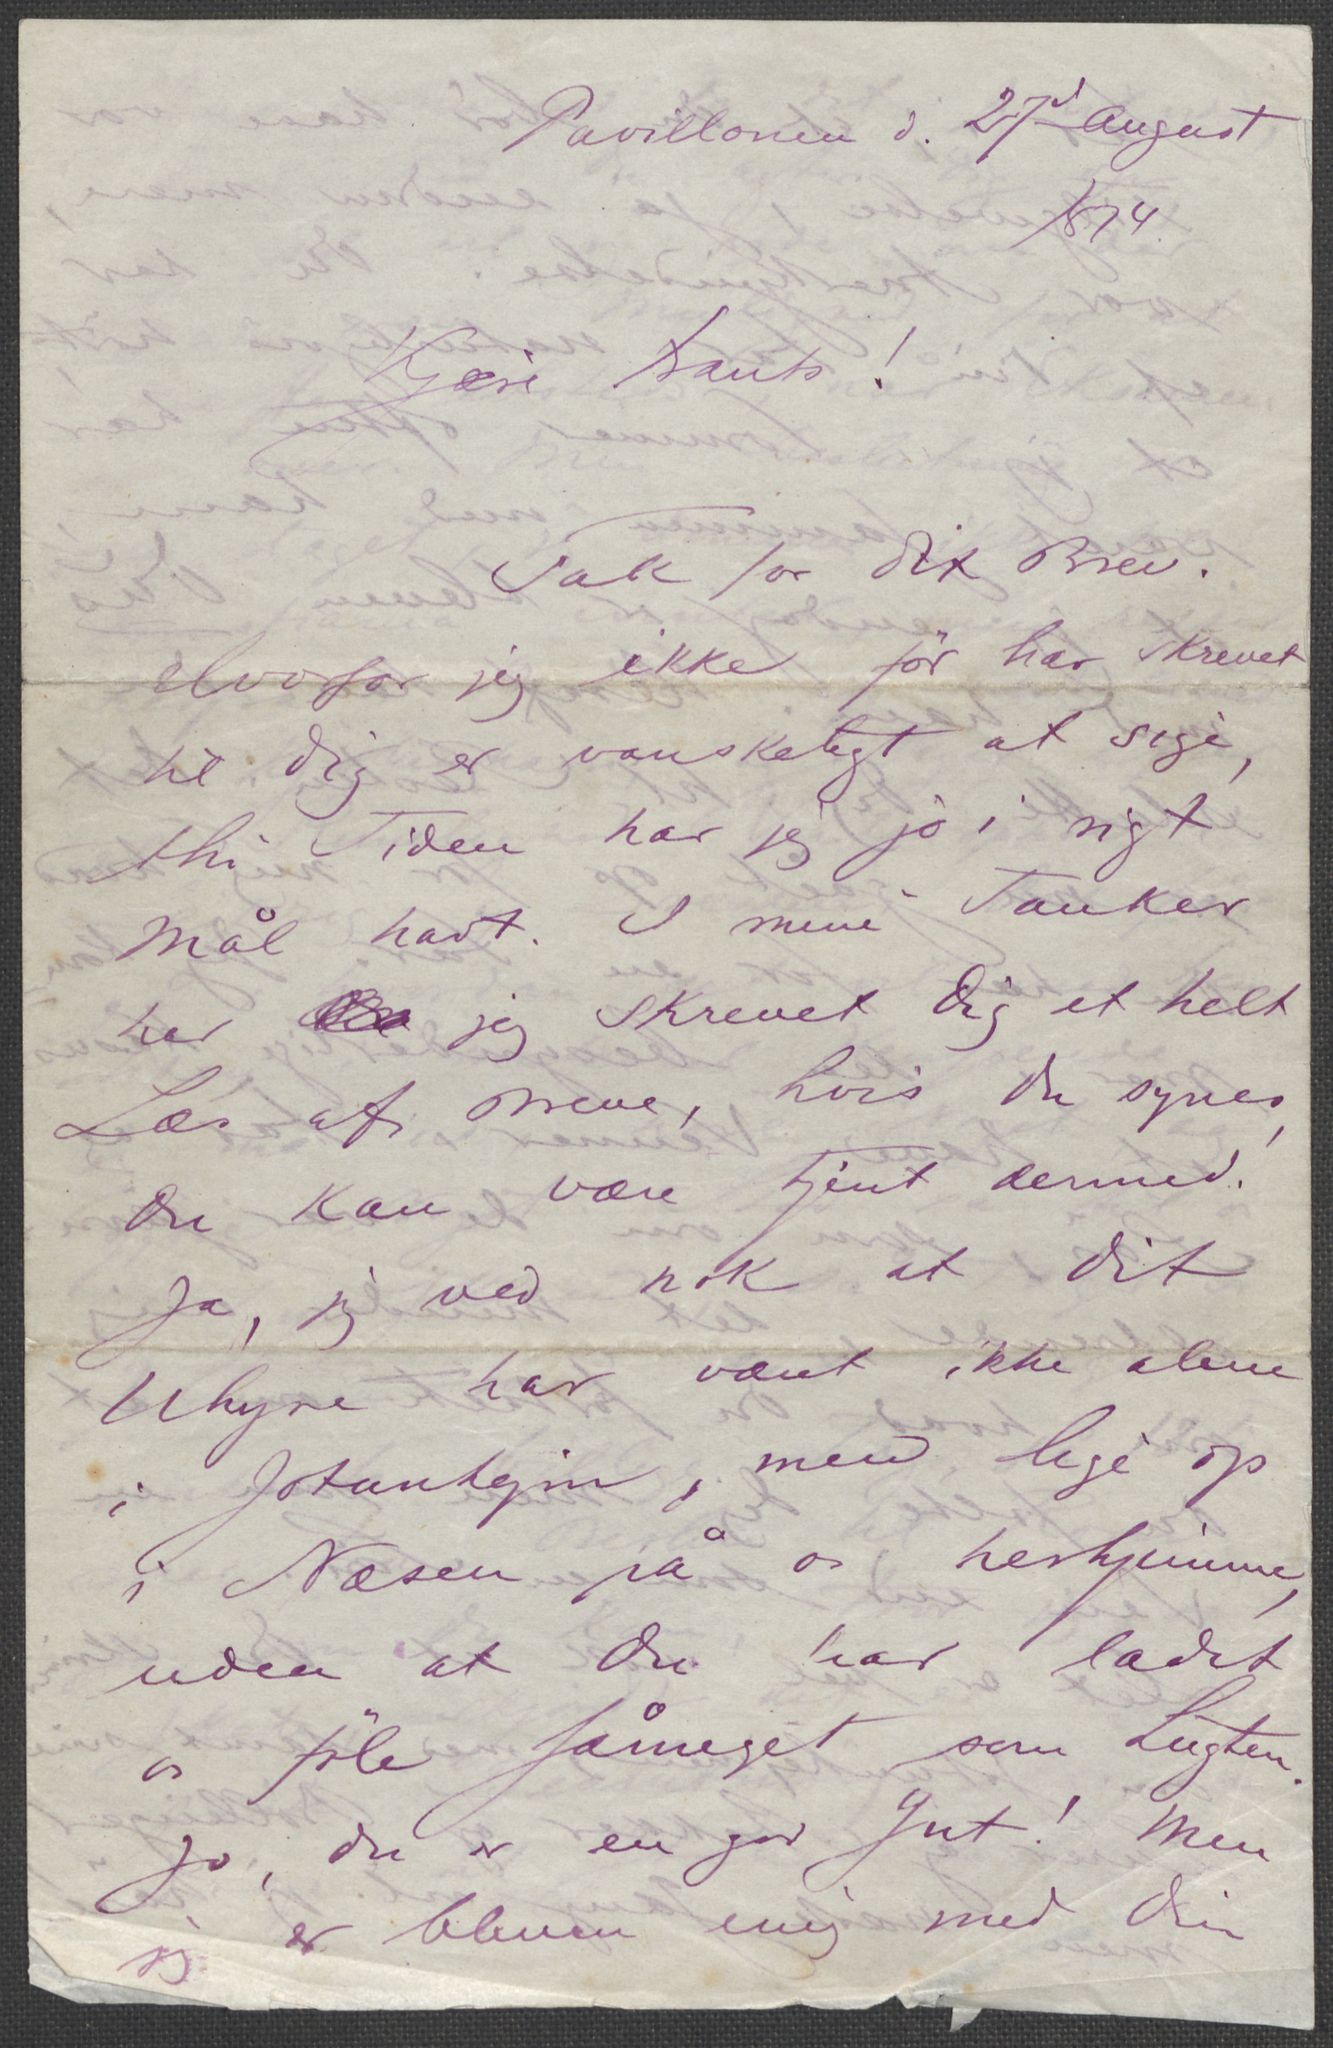 Pavillonen d. 27d August
1874.
Kjære Frants!
Tak for dit Brev.
Hvorfor jeg ikke før har skrevet
til dig er vanskeligt at sige,
thi Tiden har jeg jo i rigt
Mål havt. I mine Tanker
har jeg skrevet dig et helt
Læs af Breve, hvis du synes,
du kan være tjent dermed.
Ja, jeg ved nok at dit
Uhyre har været ikke alene
i Jotunhejm, men lige op
i Næsen på os herhjemme,
uden at du har ladet
os føle såmeget som Lugten.
Jo, du er en god Gut! Men
jeg er bleven enig med din